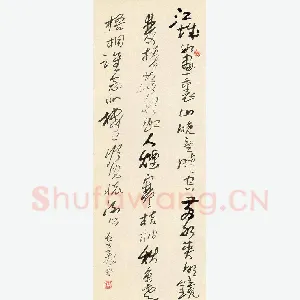 江城如画里山晚望晴空两水夹明镜
双桥落彩虹人烟寒橘柚秋色老
梧桐谁念北楼上临风怀谢公
Shufawang.CN